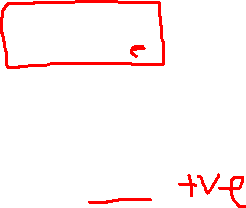 e
+ve